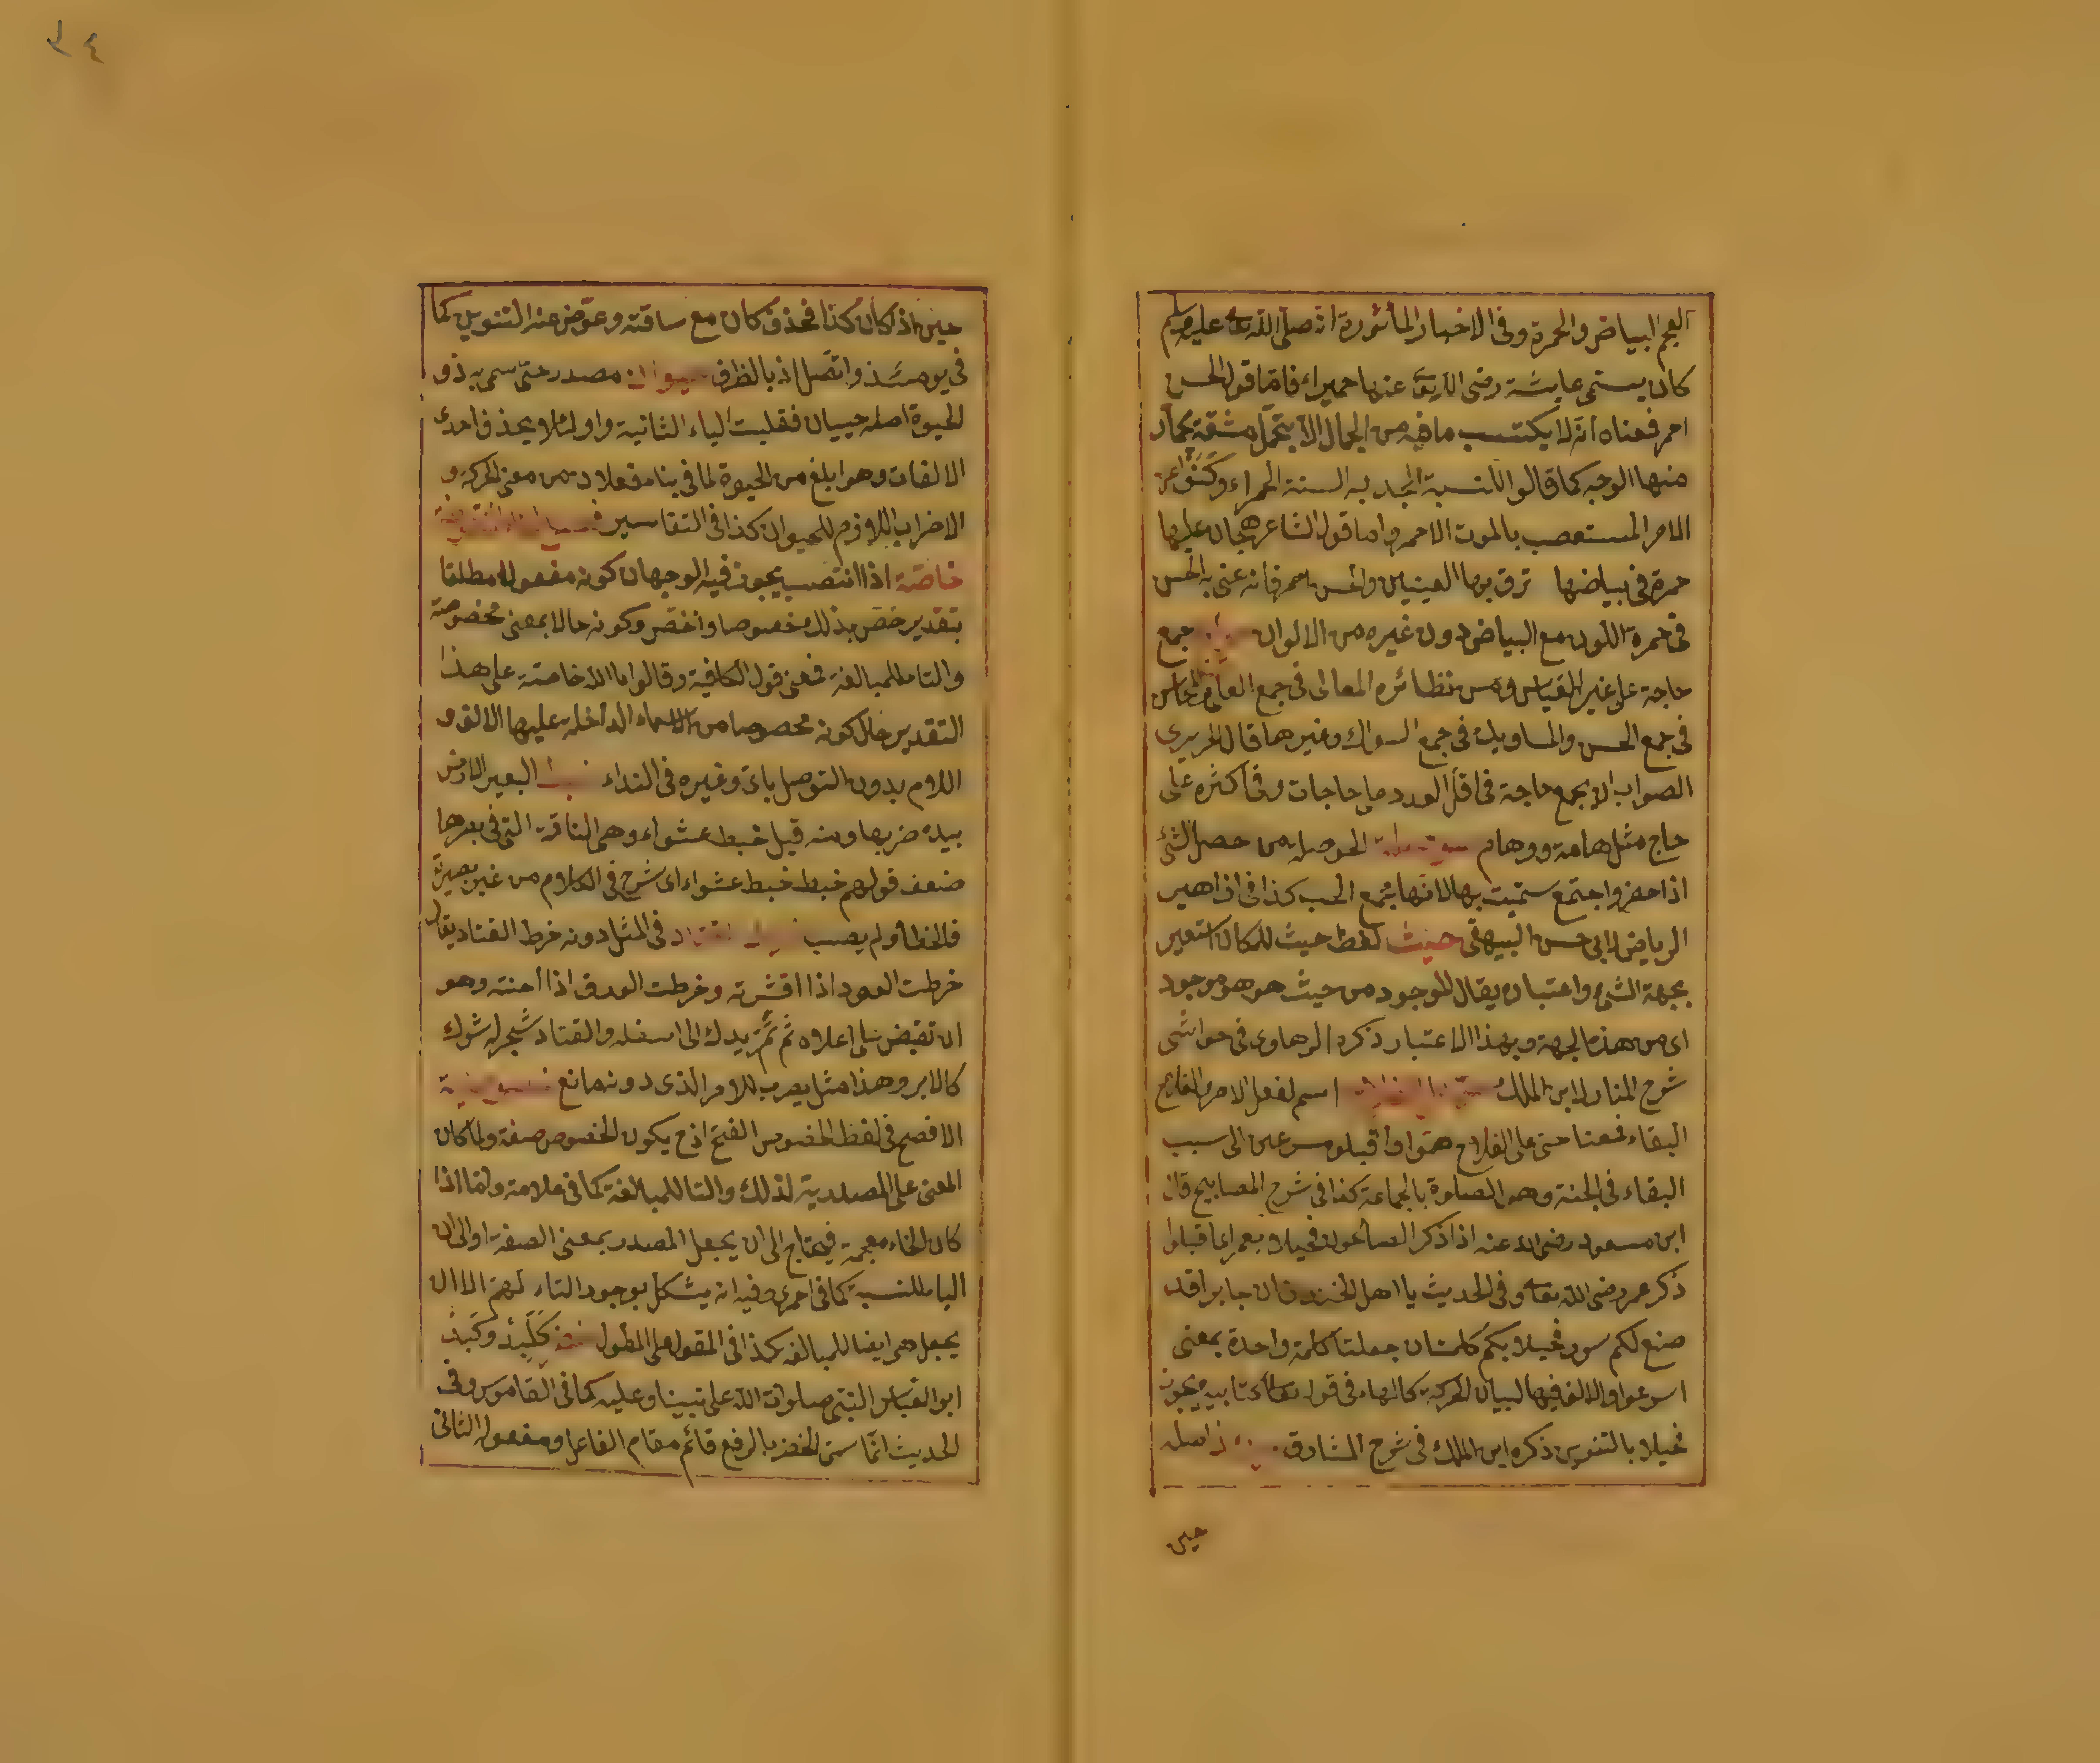 ٣٤
العجم البياض والحمرة وفى الاخبار المأثورة انه صلى الله تعالى عليه وسلم
كان يسمى عايشة رضى الله تعالى عنها حميراء فاما قولهم الحسن
احمر فمعناه انه لا يكتسب ما فيه من الجمال الا بتحمل مشقة يحمار
منها الوجه كما قالوا للسنة المجدبة السنة الحمراء وكنوا عن
الامر المستصعب بالموت الاحمر واما قول الشاعر هجان عليها
حمرة فى بياضها تروق بها العينين والحسن احمر فانه عنى به الحسن
فى حمرة اللون مع البياض دون غيره من الالوان جمع
حاجة على غير القياس ومن نظائره المعالى فى جمع العلى والمحاسن
فى جمع الحسن والمساويك فى جمع السواك وغيرها قال الحريرى
الصواب ان يجمع حاجة فى اقل العدد على حاجات وفى اكثره على
حاج مثل هامة وهام الحوصلة من حصل الشئ
اذا حضر واجتمع سميت بها لانها مجمع الحب كذا فى ازاهير
الرياض لابى حسن البيهقى حيث لفظ حيث للمكان استعير
بجهة الشئ واعتباره يقال الموجود من حيث هو هو موجود
اى من هذه الجهة وبهذا الاعتبار ذكره الرهاوى فى حواشى
شرح المنار لابن الملك اسم لفعل الامر والفلاح
البقاء فمعنا حى على الفلاح هموا واقبلوا مسرعين الى سبب
البقاء فى الجنة وهو الصلوة بالجماعة كذا فى شرح المصابيح قال
ابن مسعود رضى الله عنه اذا ذكر الصالحون فحيهلا بعمر اى اقبلوا
ذكر عمر رضى الله تعالى وفى الحديث يا اهل الخندق ان جابرا قد
صنع لكم سورا فحيهلا بكم كلمتان جعلتا كلمة واحدة بمعنى
اسرعوا والالف فيها لبيان الحركة كالهاء فى قوله تعالى كتابيه ويجوز
حيهلا بالتنوين ذكره ابن الملك فى شرح المشارق اصله
حين
حين اذ كان كذا فحذف كان مع ساقته وعوض عنه التنوين كما
فى يومئذ واتصل اذ بالظرف حيوان مصدر حتى سمى به ذو
الحيوة اصله حييان فقلبت الياء الثانية واوا لئلا يحذف احدى
الالفات وهو ابلغ من الحيوة لما فى بناء فعلان من معنى الحركة و
الاضراب اللازم للحيوان كذا فى التفاسير
خاصة اذا انتصب يجوز فيه الوجهان كونه مفعولا مطلقا
بتقدير خص بذلك خصوصا واختص وكونه حالا بمعنى مخصوصة
والتاء للمبالغة فمعنى قول الكافية وقالوا يا الله خاصة على هذا
التقدير حال كونه مخصوصا من الاسماء الداخلة عليها الالف و
اللام بدون التوصل باى وغيره فى النداء البعير الارض
بيده ضربها ومنه قيل خبط عشواء وهى الناقة التى فى بصرها
ضعف قولهم خبط خبط عشواء اى شرع فى الكلام من غير بصيرة
فالخطأ ولم يصب فى المثل دونه خرط القتاد يقال
خرطت العود اذا قشرته وخرطت الورق اذا احتته وهو
ان تقبض على اعلاه ثم تمر يدك الى اسفله والقتاد شجر له شوك
كالابر وهذا مثل يضرب للامر الذى دونه مانع
الافصح فى لفظ الخصوص الفتح اذ ح يكون الخصوص صفة ولما كان
المعنى على المصدرية لذلك والتا للمبالغة كما فى علامة واما اذا
كان الخاء معجمة فيحتاج الى ان يجعل المصدر بمعنى الصفة او الى ان
الياء للنسبة كما فى احمرى وفيه انه يشكل بوجود التاء اللهم الا ان
يجعل هى ايضا للمبالغة كذا فى المقول على المطول كَلَبِدْ وكَبِدْ
ابو العباس النبى صلوات الله على نبينا وعليه كما فى القاموس وفى
الحديث انما سمى الخضر بالرفع قائم مقام الفاعل ومفعوله الثانى